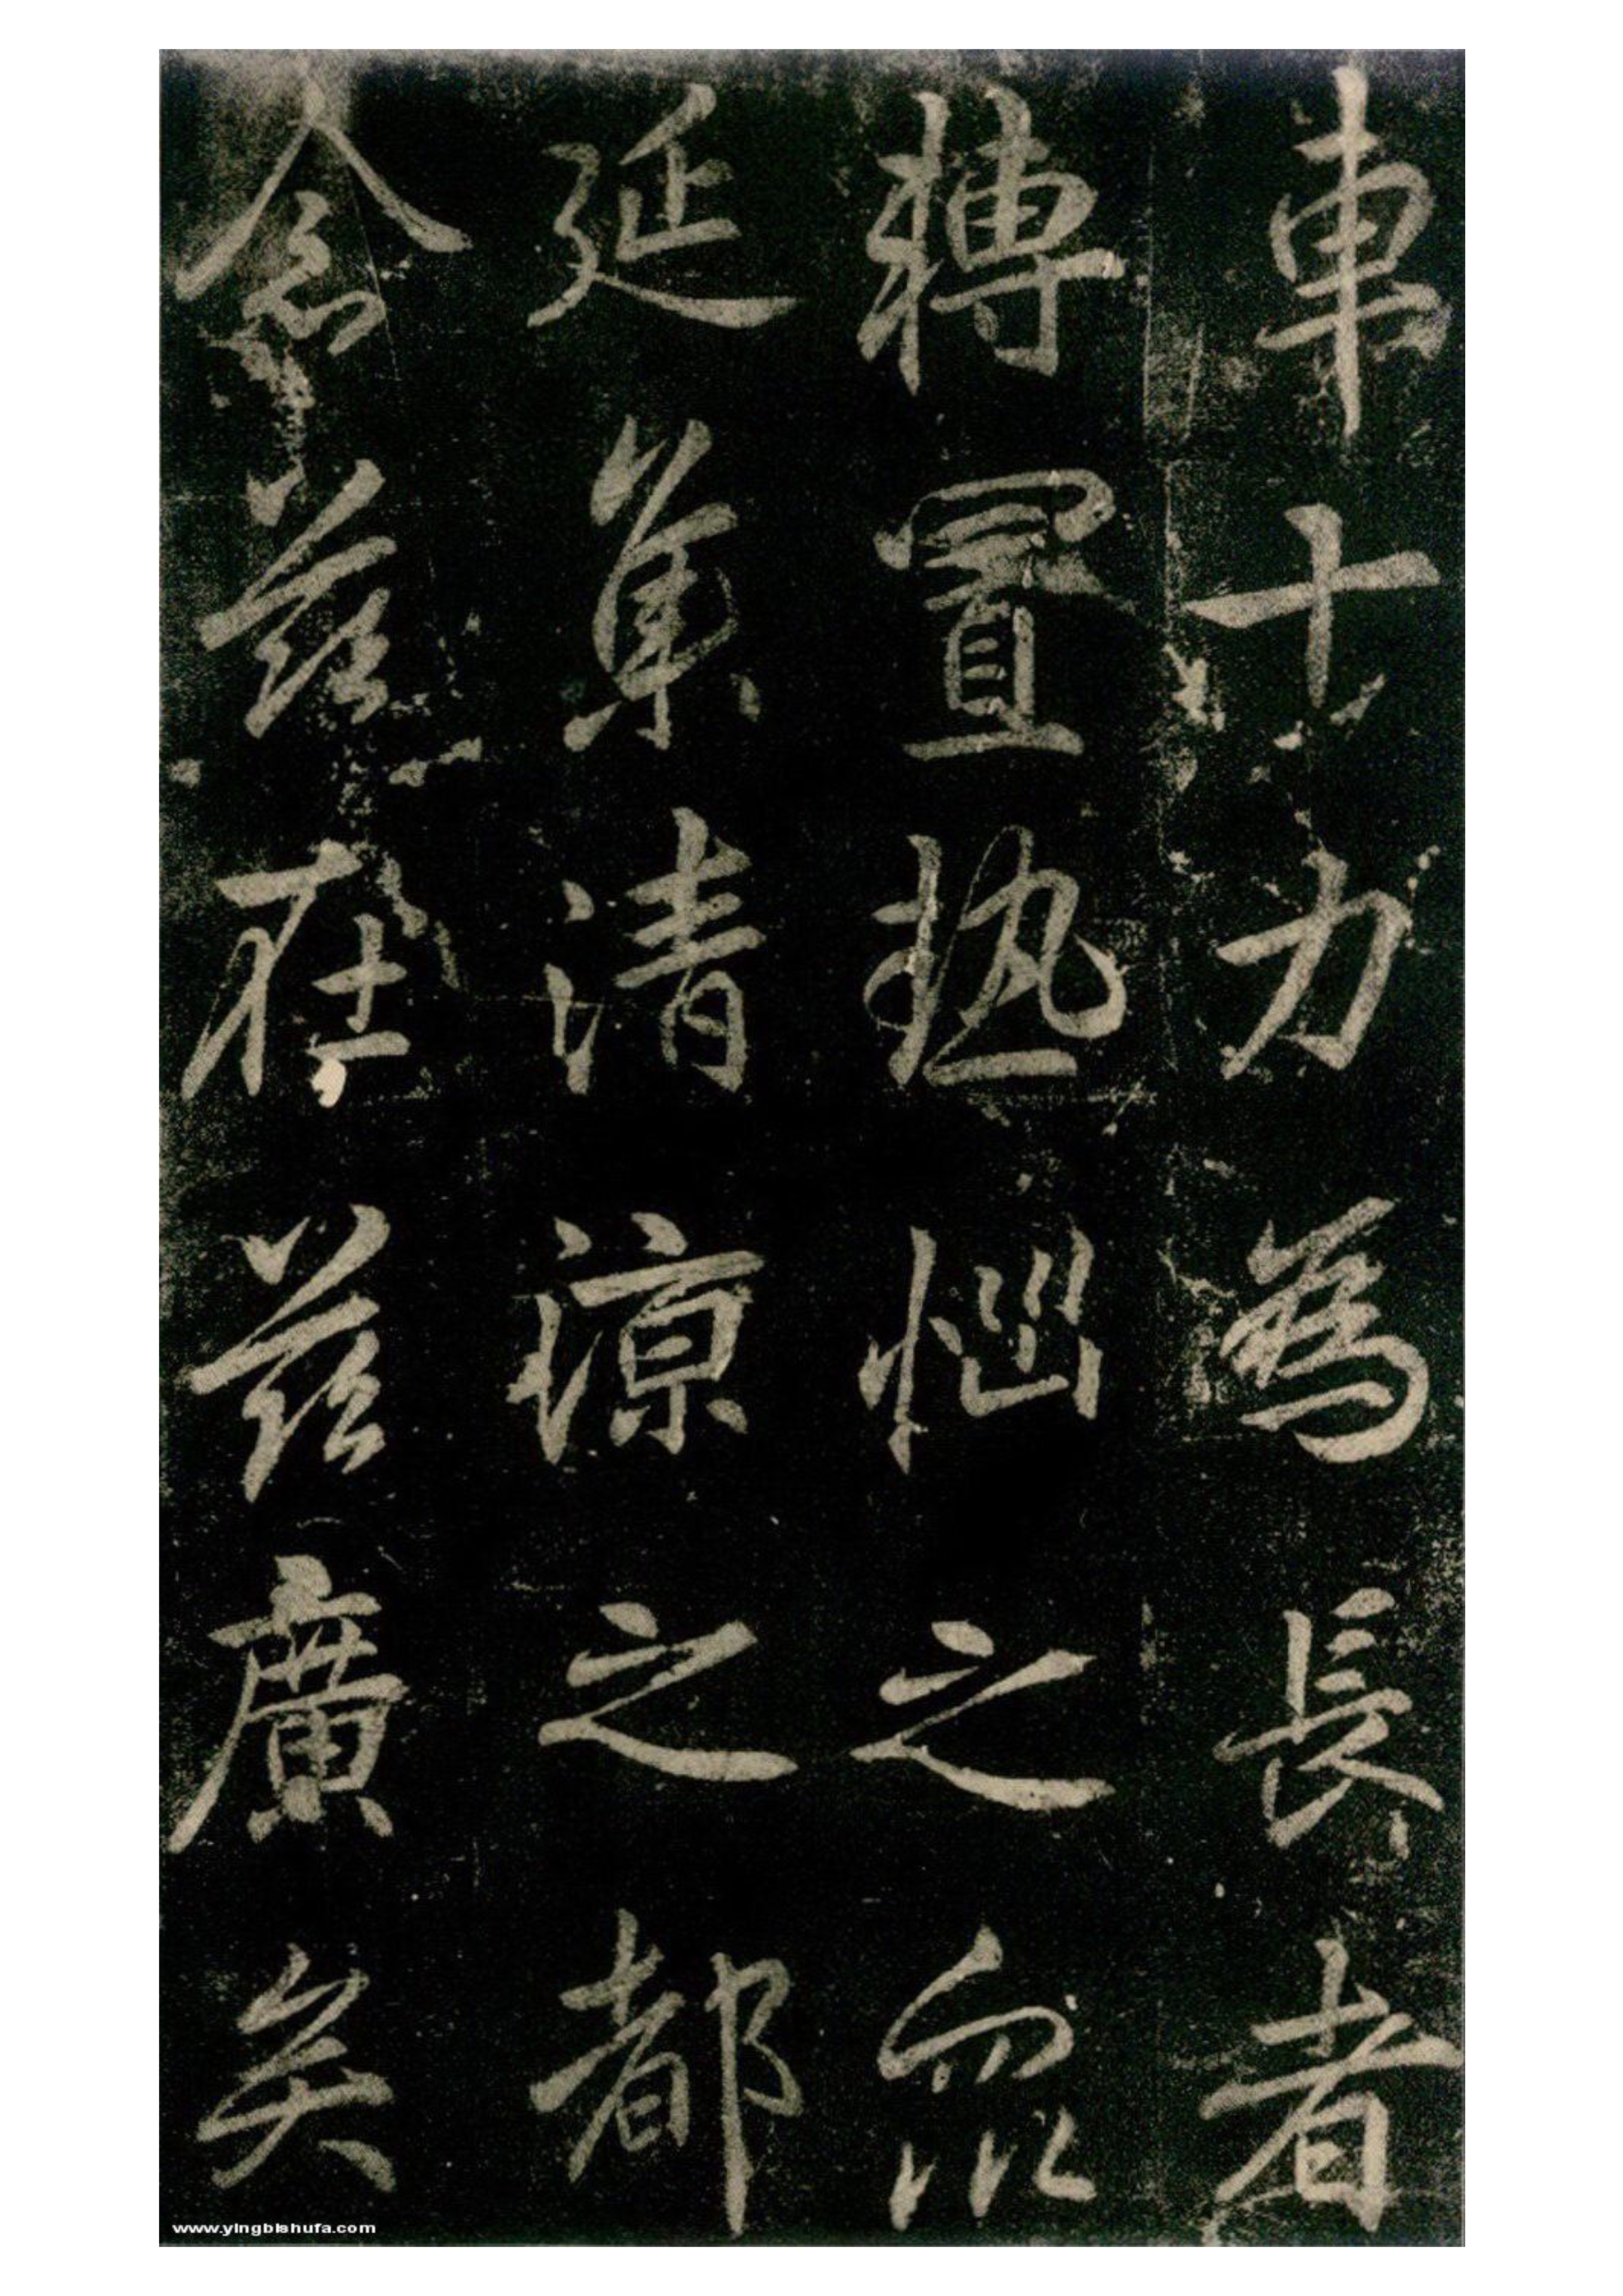 車十力為長者
轉置熱惱之眾
延集清涼之都
念茲在茲廣矣
www.yingbishufa.com